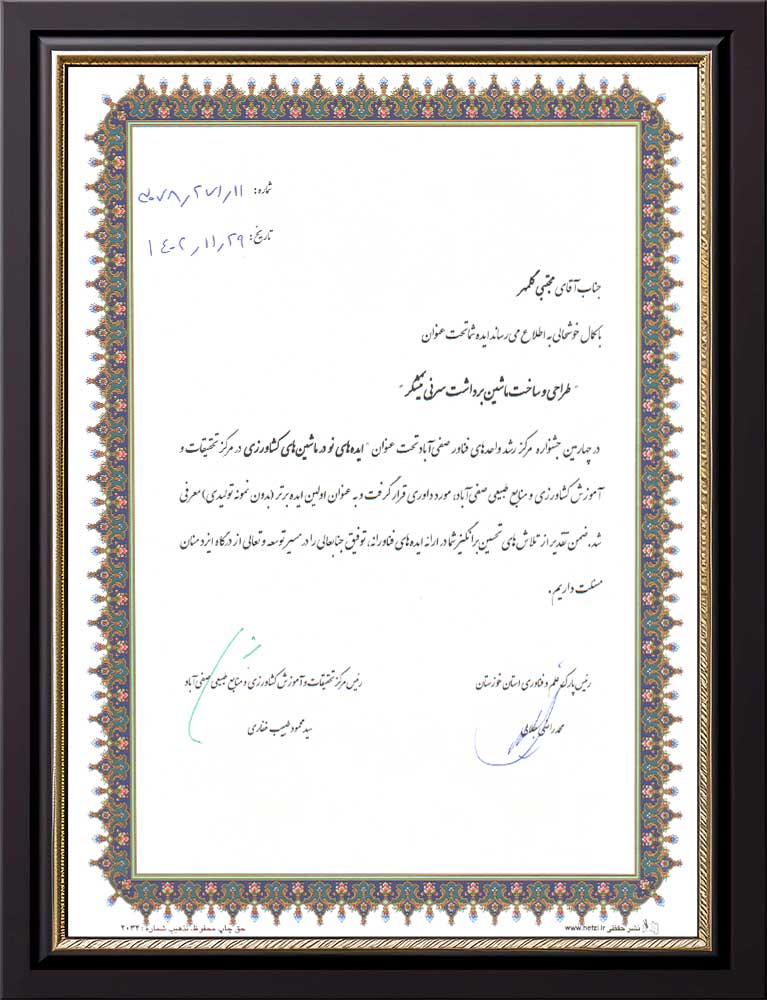 شماره: ۲۰۷۸٫۲۷۱٫۱۱
تاریخ: ۱۴۰۲٫۱۱٫۲۹
جناب آقای مجتبی گلمهر
با کمال خوشحالی به اطلاع می رساند ایده شما تحت عنوان
" طراحی و ساخت ماشین برداشت سرنی نیشکر "
در چهارمین جشنواره مرکز رشد واحدهای فناور صفی آباد تحت عنوان " ایده های نو در ماشین های کشاورزی در مرکز تحقیقات و
آموزش کشاورزی و منابع طبیعی صفی آباد، مورد داوری قرار گرفت و به عنوان اولین ایده برتر (بدون نمونه تولیدی) معرفی
شد. ضمن تقدیر از تلاش های تحسین برانگیز شما در ارائه ایده های فناورانه، توفیق جنابعالی را در مسیر توسعه و تعالی از درگاه ایزد منان
مسئلت داریم.
رئیس پارک علم و فناوری استان خوزستان
رئیس مرکز تحقیقات و آموزش کشاورزی و منابع طبیعی صفی آباد
محمدرضا
سید محمود طبیب غفاری
نشر حفظی www.hefzi.ir
حق چاپ محفوظ، تذهیب شماره: ۲۰۳۲